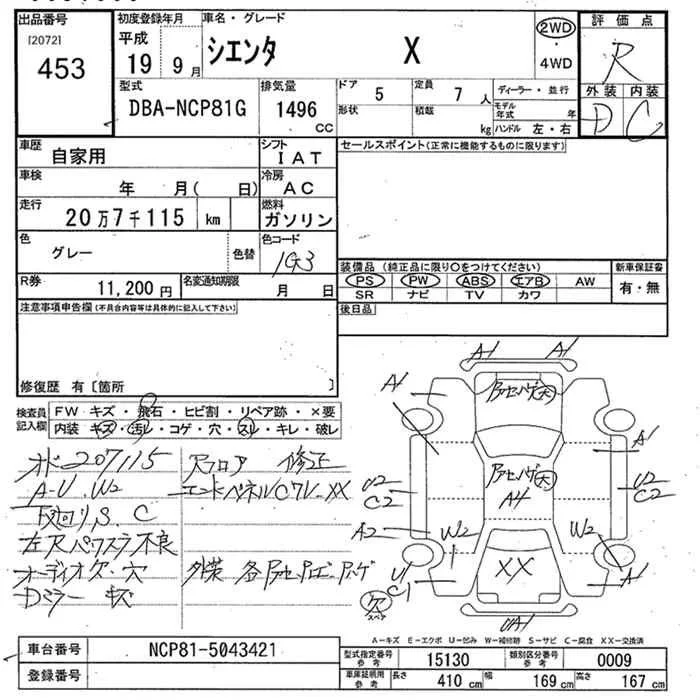 出品番号
[2072]
453
初度登録年月
平成
19 9 月
車名・グレード
シエンタ X
2WD
4WD
評価点
R
外装 内装
D C
型式
DBA-NCP81G
排気量
1496
CC
ドア 5
形状
定員 7 人
積載 kg
ディーラー・並行
モデル年式 年
ハンドル 左・右
車歴
自家用
シフト
IAT
車検
年 月( 日)
冷房
AC
走行
20万7千115 km
燃料
ガソリン
色
グレー
色替
色コード
1G3
R券
11,200 円
名変通知期限
月 日
セールスポイント(正常に機能するものに限ります)
装備品 (純正品に限り○をつけてください)
PS PW ABS エアB AW
SR ナビ TV カワ
新車保証書
有・無
後日品
注意事項申告欄(不具合内容等は具体的に記入して下さい)
修復歴 有〔箇所 〕
検査員記入欄
FW キズ・飛石・ヒビ割・リペア跡・×要
内装 キズ・汚レ・コゲ・穴・スレ・キレ・破レ
オド207115
A-U.W2
下廻りS.C
左Rパワスラ不良
オーディオ欠・穴
Dミラー キズ
Rフロア 修正
エンドパネルUワレ-XX
外装
A1 A1
A1
A1
U2
C2
U2
C2
A4
A2
W2
W2
U1
C1
A1
XX
欠
スペア
UA1
A-キズ E-エクボ U-凹み W-補修跡 S-サビ C-腐食 XX-交換済
車台番号
NCP81-5043421
登録番号
型式指定番号
参考
15130
類別区分番号
参考
0009
車庫証明用
参考
長さ 410 cm
幅 169 cm
高さ 167 cm